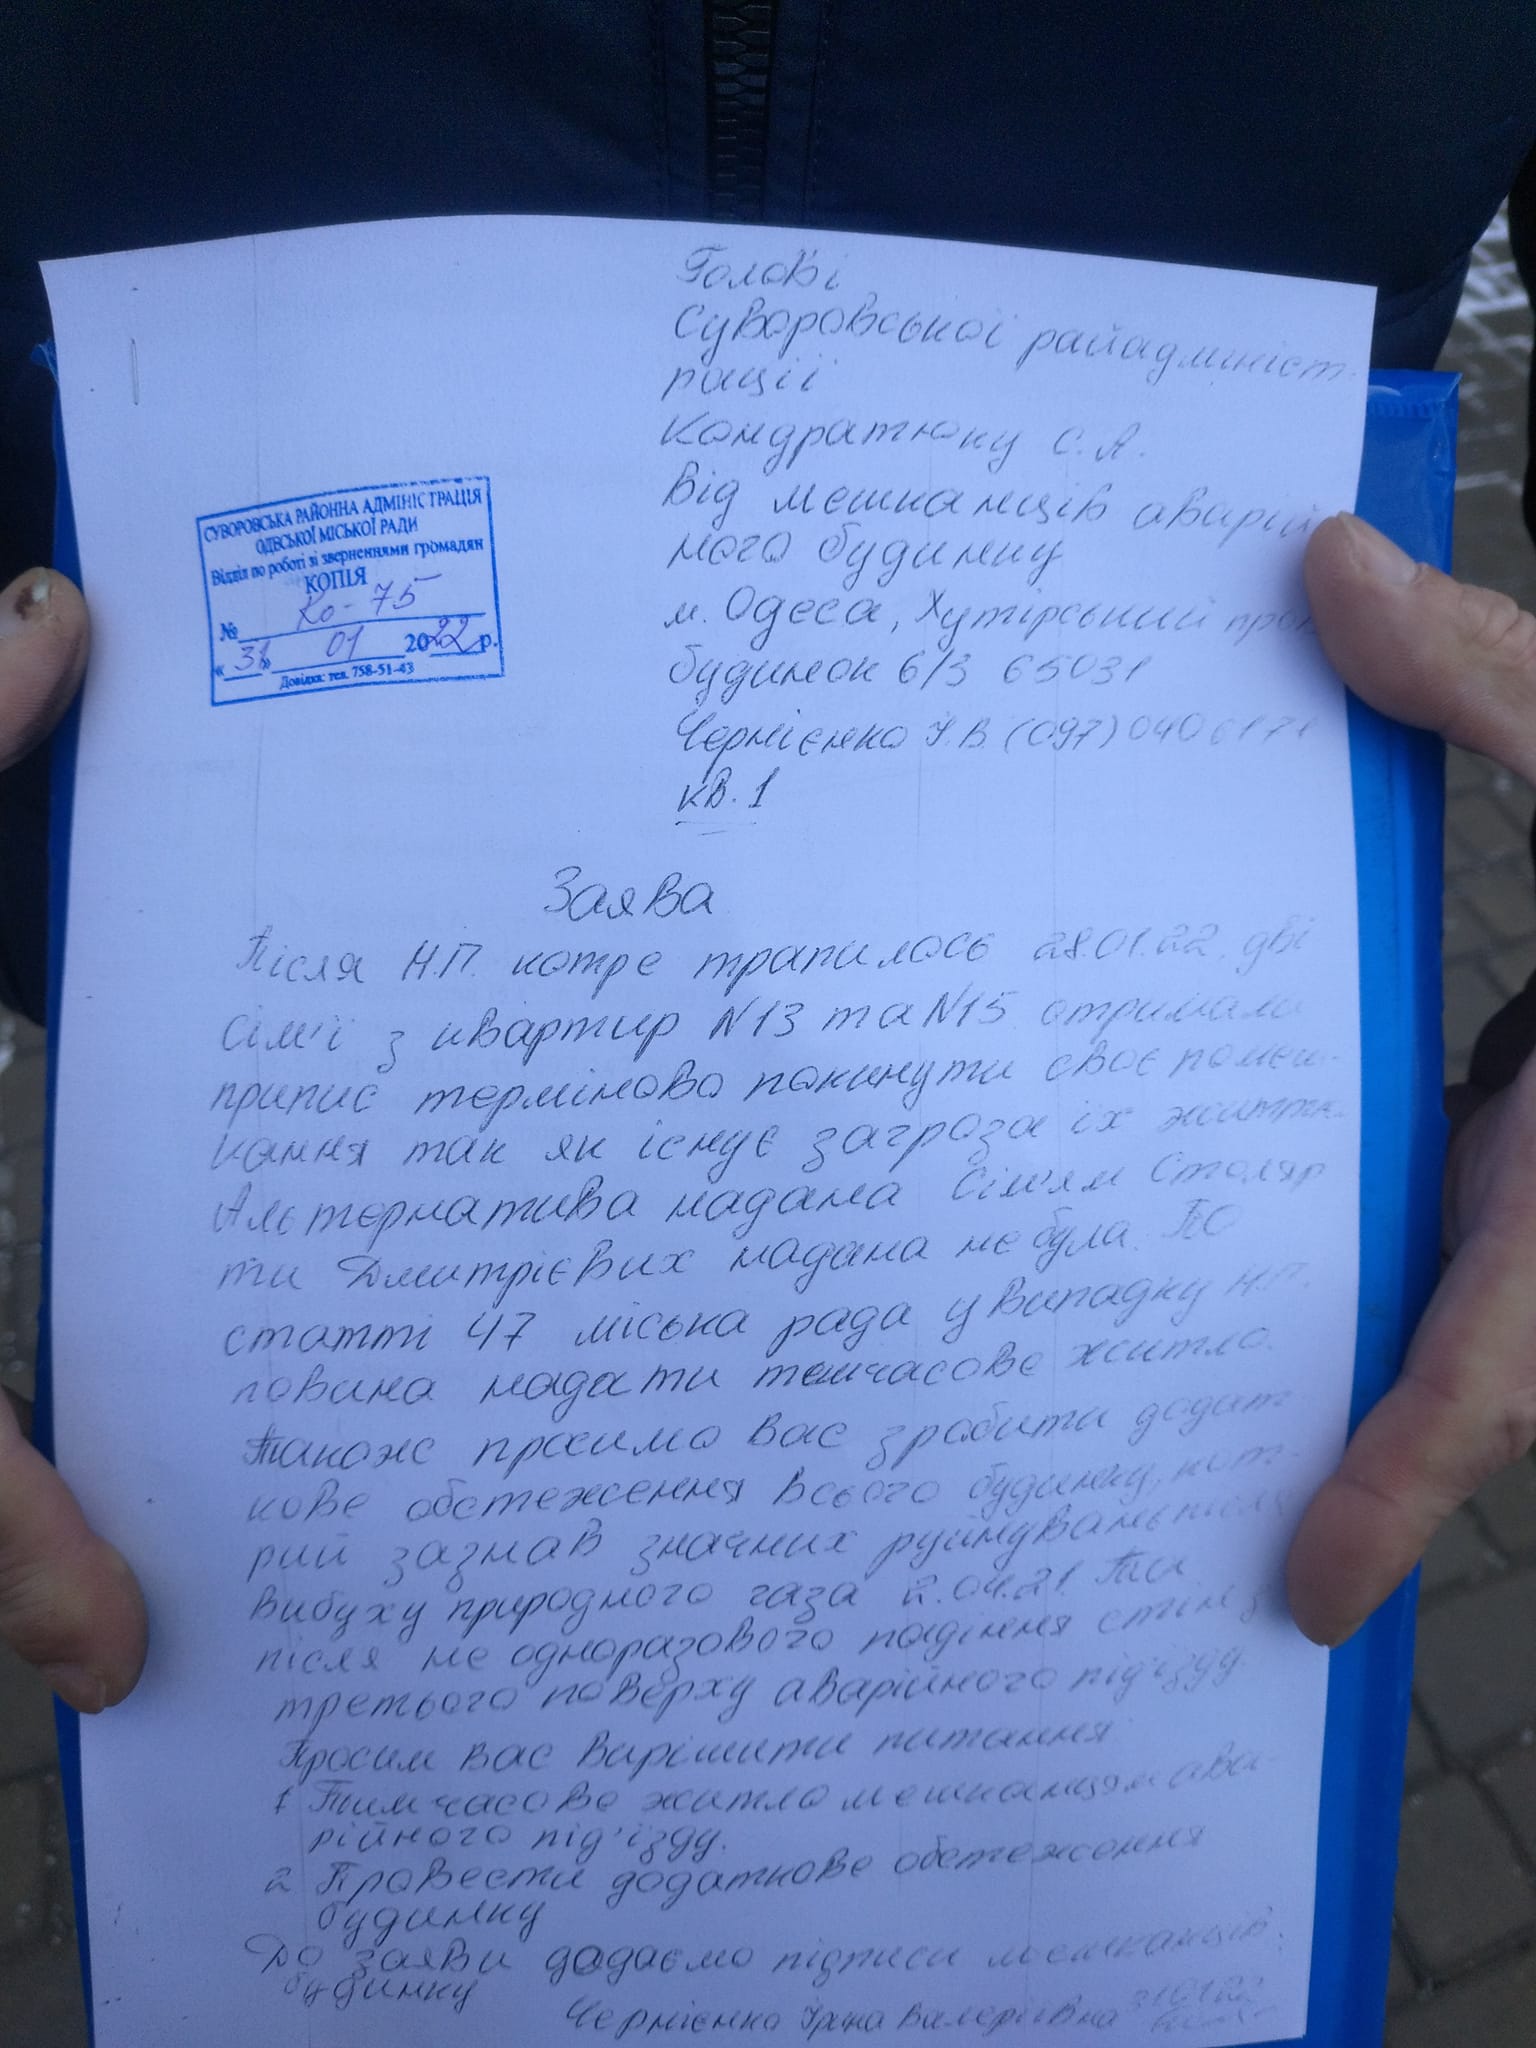 Голові
Суворовської райадмініст-
рації
Кондратюку С.А.
Від мешканців аварій
ного будинку
м. Одеса, Хутірський пров
будинок 6/3 65031
Чернієнко І.В. (097) 0406171
кв. 1
СУВОРОВСЬКА РАЙОННА АДМІНІСТРАЦІЯ
ОДЕСЬКОЇ МІСЬКОЇ РАДИ
Відділ по роботі зі зверненнями громадян
КОПІЯ
№ Ко-75
«31» 01 2022 р.
Довідка: тел. 758-51-43
Заява
Після Н.П. котре трапилось 28.01.22. дві
сім'ї з квартир N13 та N15 отримали
припис терміново покинути своє помеш-
кання так як існує загроза їх життю.
Альтернатива надана сім'ям Столяр
ти Дмитрієвих надана не була. По
статті 47 міська рада у випадку Н.П.
повина надати темчасове житло.
Також просимо Вас зробити додат
кове обстеження всього будинку, кот-
рий зазнав значних руйнувань після
вибуху природного газа 2.04.21. Та
після не одноразового падіння стін з
третього поверху аварійного під'їзду.
Просим Вас Варішити питання
1 Тимчасове житло мешканцям ава-
рійного під'їзду.
2 Провести додаткове обстеження
будинку
До заяви додаємо підписи мешканців
будинку
Чернієнко Ірина Валеріївна 31.01.22